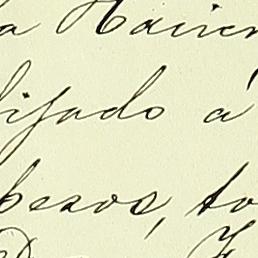 a Hacien
fijado á
pesos, to